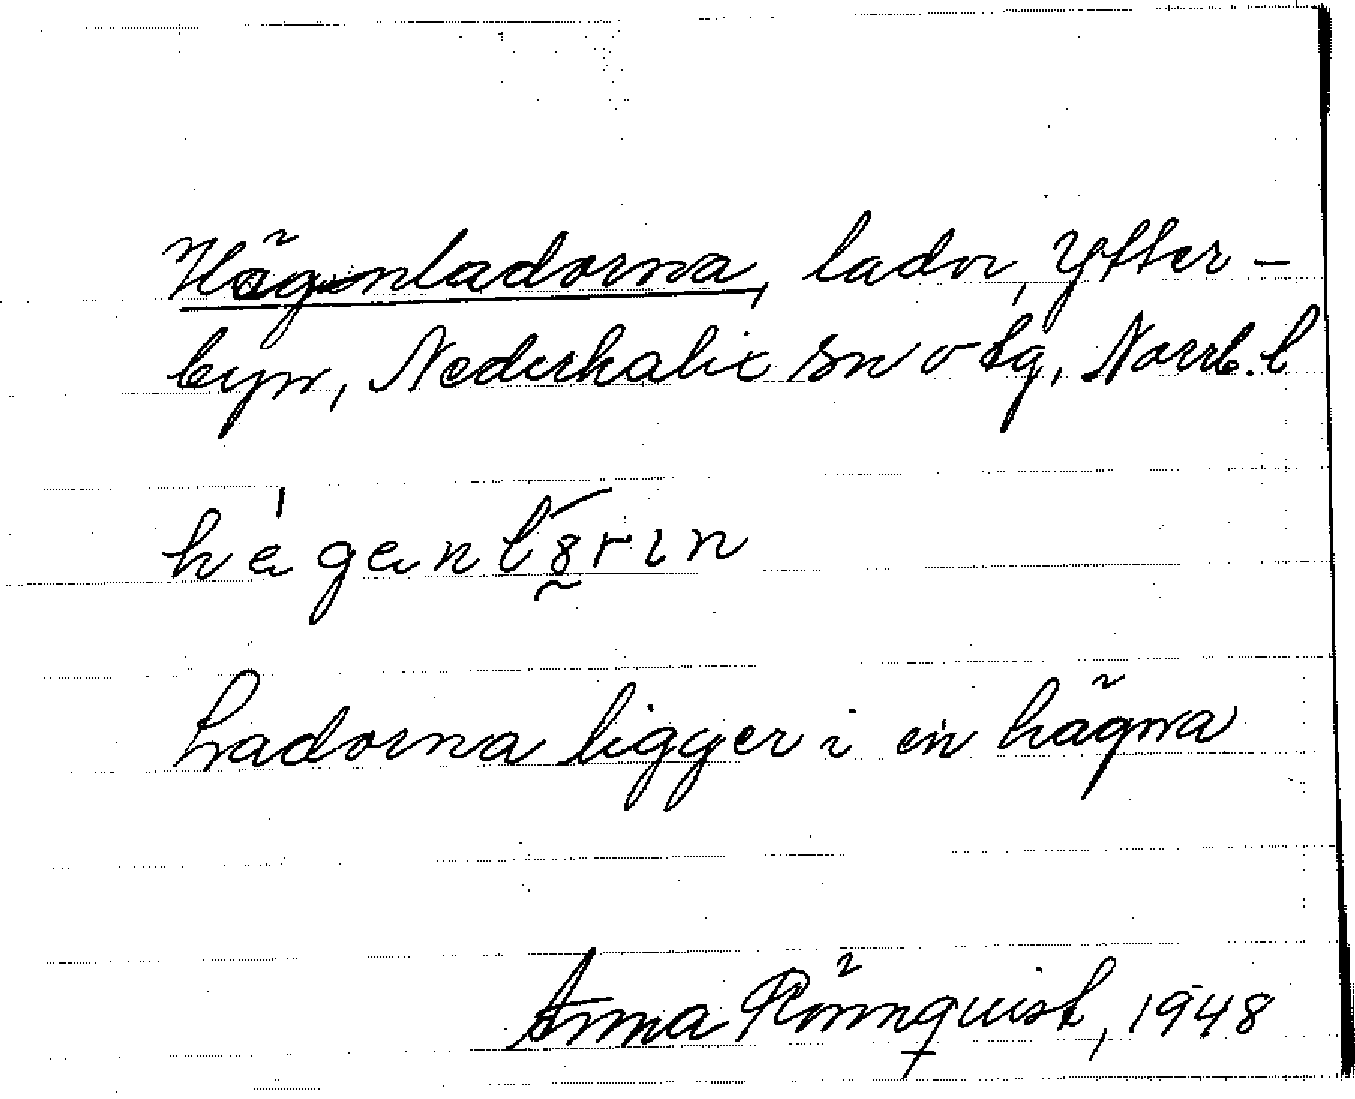 Hägnladorna, lador, Ytter-
byn, Nederkalix sn o tg, Norrb. l
Ladorna ligger i en hägna
Anna Rönnquist, 1948